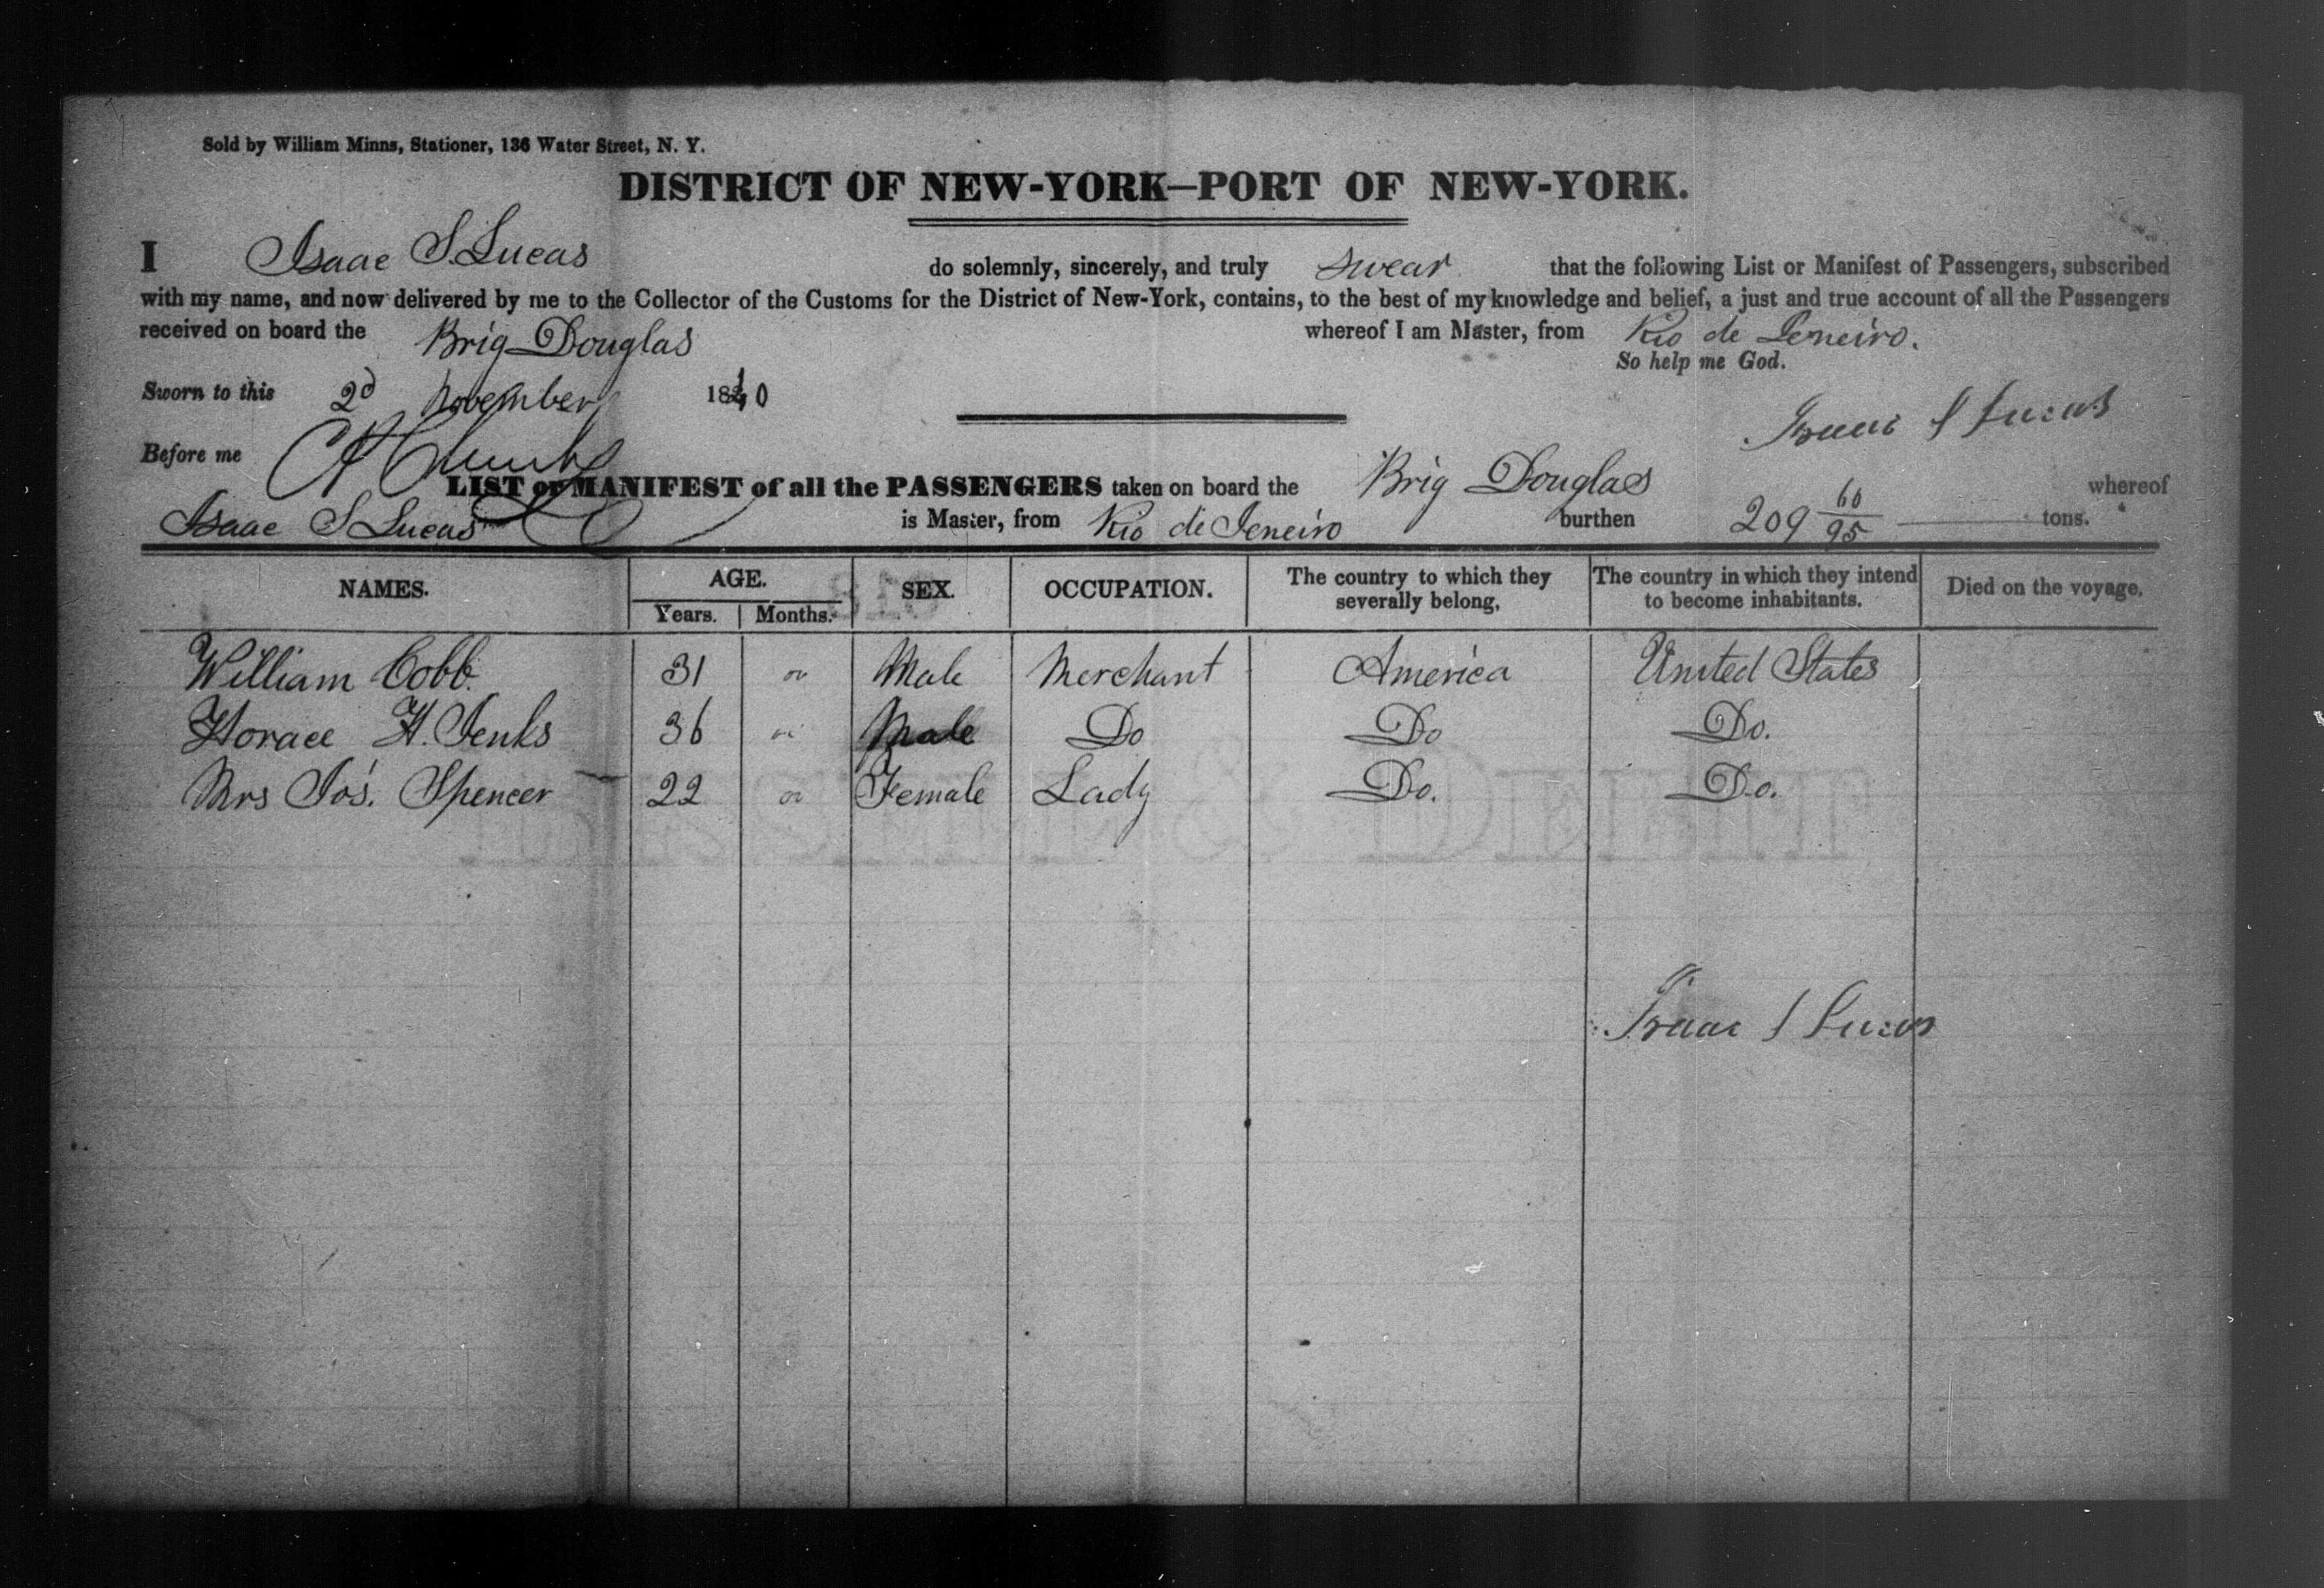 Sold by William Minns, Stationer, 136 Water Street, N. Y.
DISTRICT OF NEW-YORK—PORT OF NEW-YORK.
I Isaac S. Lucas do solemnly, sincerely, and truly swear that the following List or Manifest of Passengers, subscribed
with my name, and now delivered by me to the Collector of the Customs for the District of New-York, contains, to the best of my knowledge and belief, a just and true account of all the Passengers
received on board the Brig Douglas whereof I am Master, from Rio de Jeneiro.
So help me God.
Sworn to this 2d November 1840
Isaac S Lucas
Before me
LIST or MANIFEST of all the PASSENGERS taken on board the Brig Douglas whereof
Isaac S Lucas is Master, from Rio de Jeneiro burthen 209 60/95 tons.
NAMES. AGE. SEX. OCCUPATION. The country to which they severally belong, The country in which they intend to become inhabitants. Died on the voyage.
Years. Months.
William Cobb. 31 Male Merchant America United States
Horace H. Jenks 36 Male Do Do Do.
Mrs Jos. Spencer 22 Female Lady Do. Do.
Isaac S Lucas